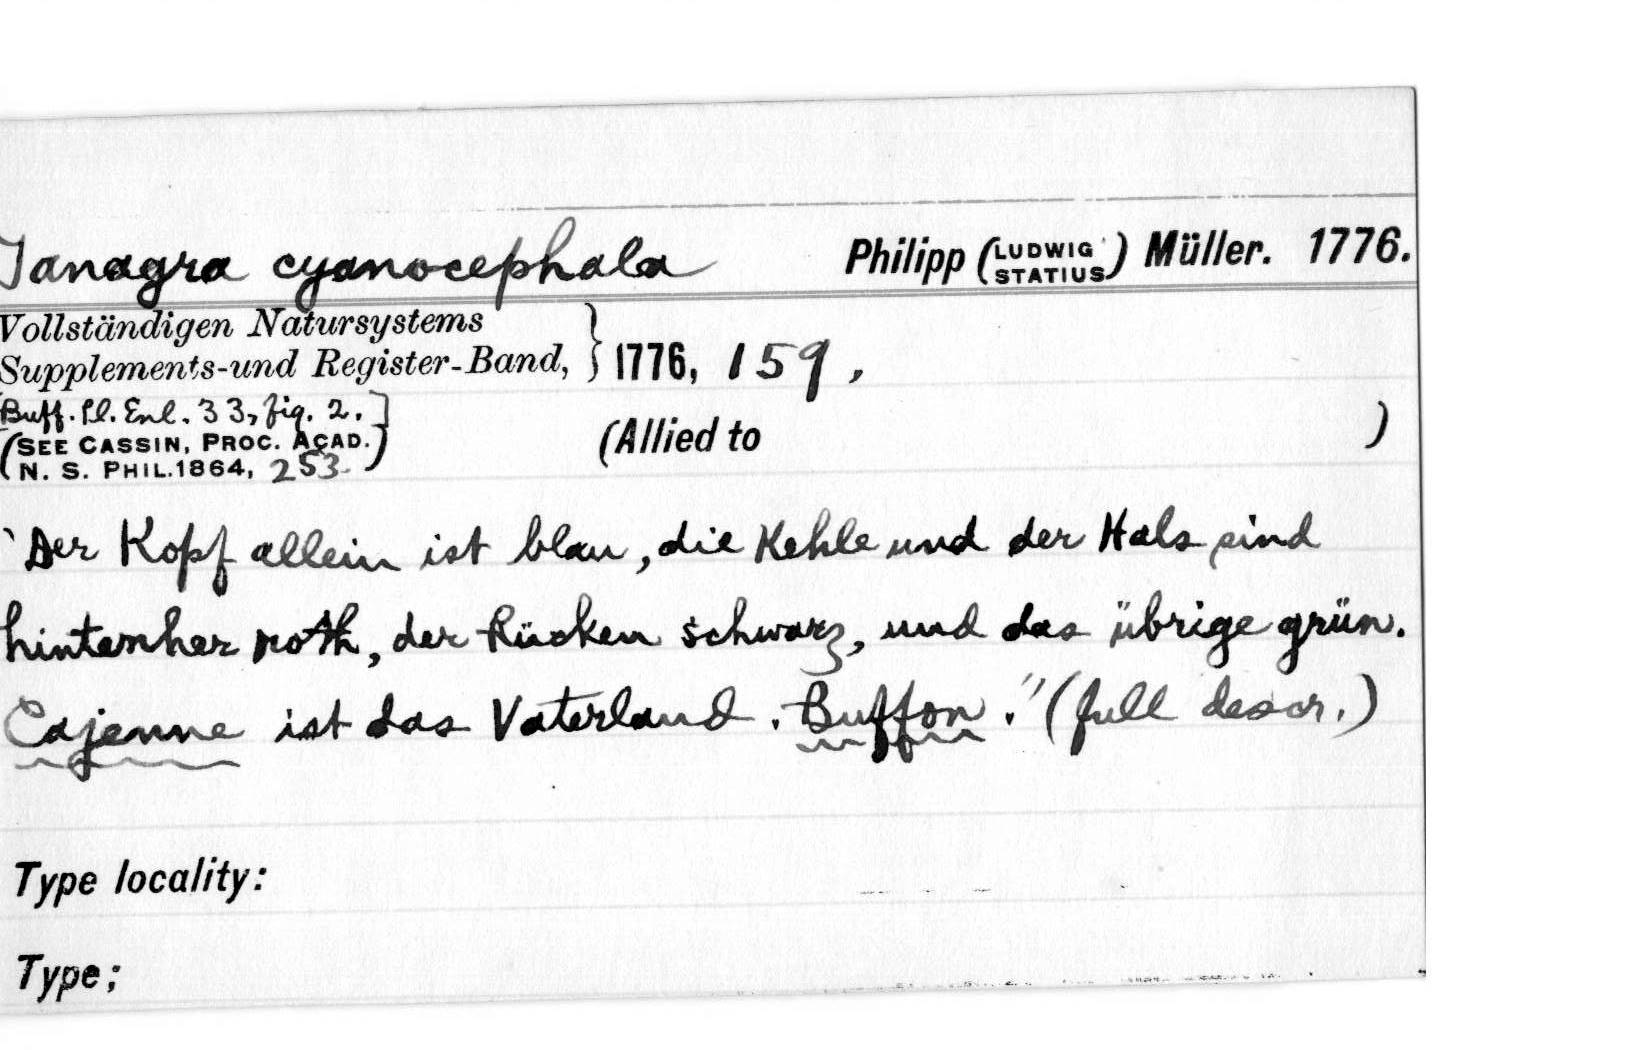 Tanagra cyanocephala Philipp (LUDWIG STATIUS) Müller. 1776.
Vollständigen Natursystems
Supplements-und Register-Band, } 1776, 159,
[Buff. Pl. Enl. 33, fig. 2.]
(SEE CASSIN, PROC. ACAD. N. S. PHIL. 1864, 253) (Allied to )
"Der Kopf allein ist blau, die Kehle und der Hals sind
hintenher roth, der Rücken schwarz, und das übrige grün.
Cajenne ist das Vaterland. Buffon." (full descr.)
Type locality:
Type;